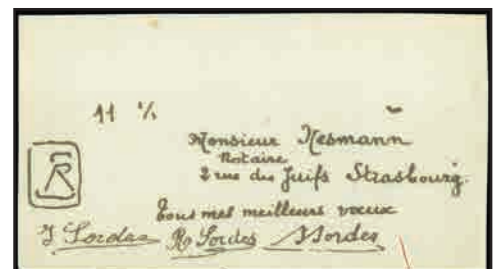 11 %
Monsieur Nesmann
Notaire
2 rue des Juifs Strasbourg.
R
Tous mes meilleurs voeux
J Sordes R. Sordes Sordes